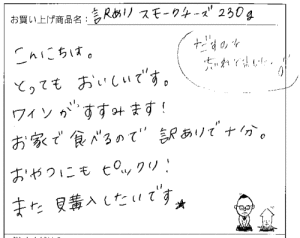 お買い上げ商品名：訳あり スモークチーズ 230g
こんにちは。
とっても おいしいです。
ワインが すすみます！
お家で 食べるので 訳ありで十分。
おやつにも ピックリ！
また 購入したいです★